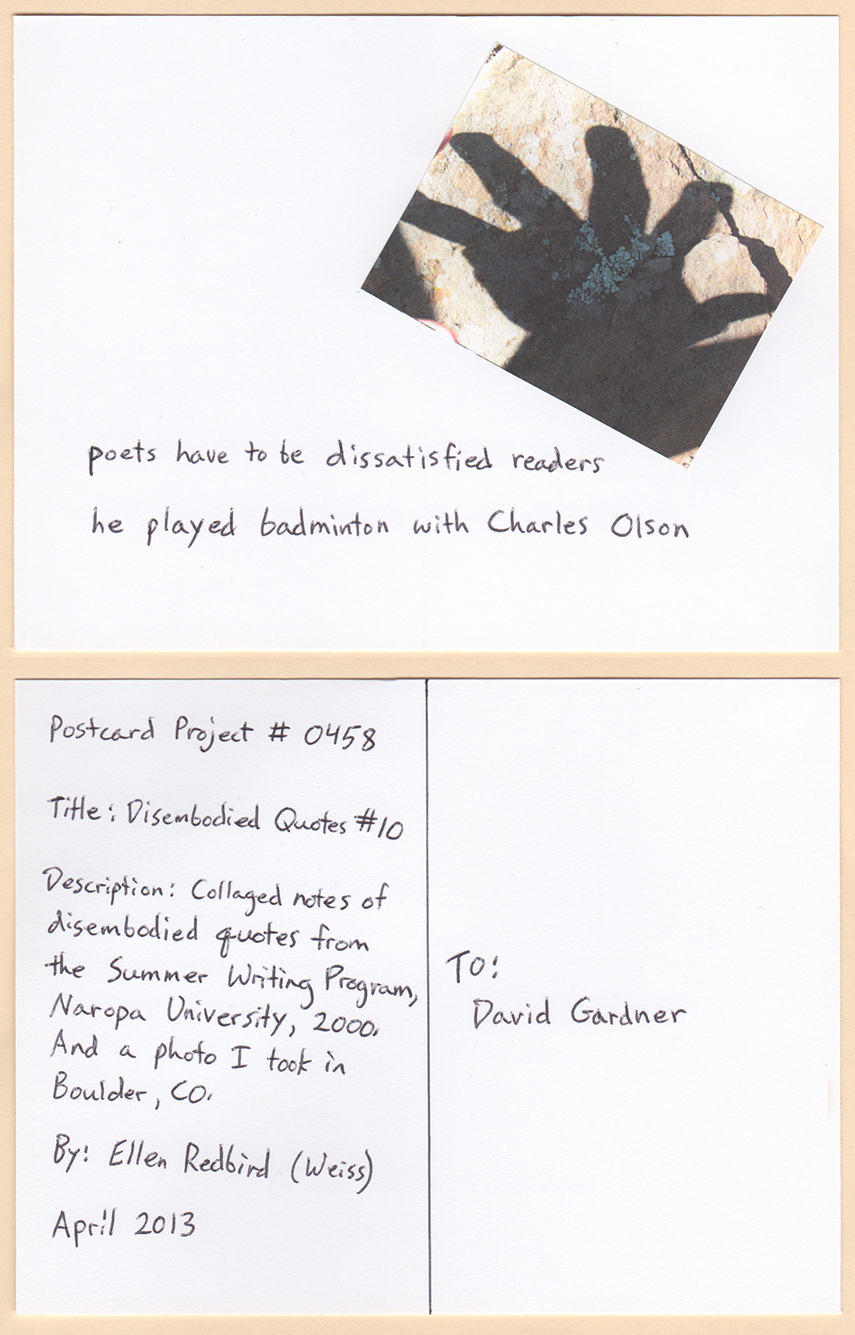 poets have to be dissatisfied readers
he played badminton with Charles Olson
Postcard Project # 0458
Title: Disembodied Quotes #10
Description: Collaged notes of
disembodied quotes from
the Summer Writing Program,
Naropa University, 2000.
And a photo I took in
Boulder, CO.
By: Ellen Redbird (Weiss)
April 2013
TO:
David Gardner